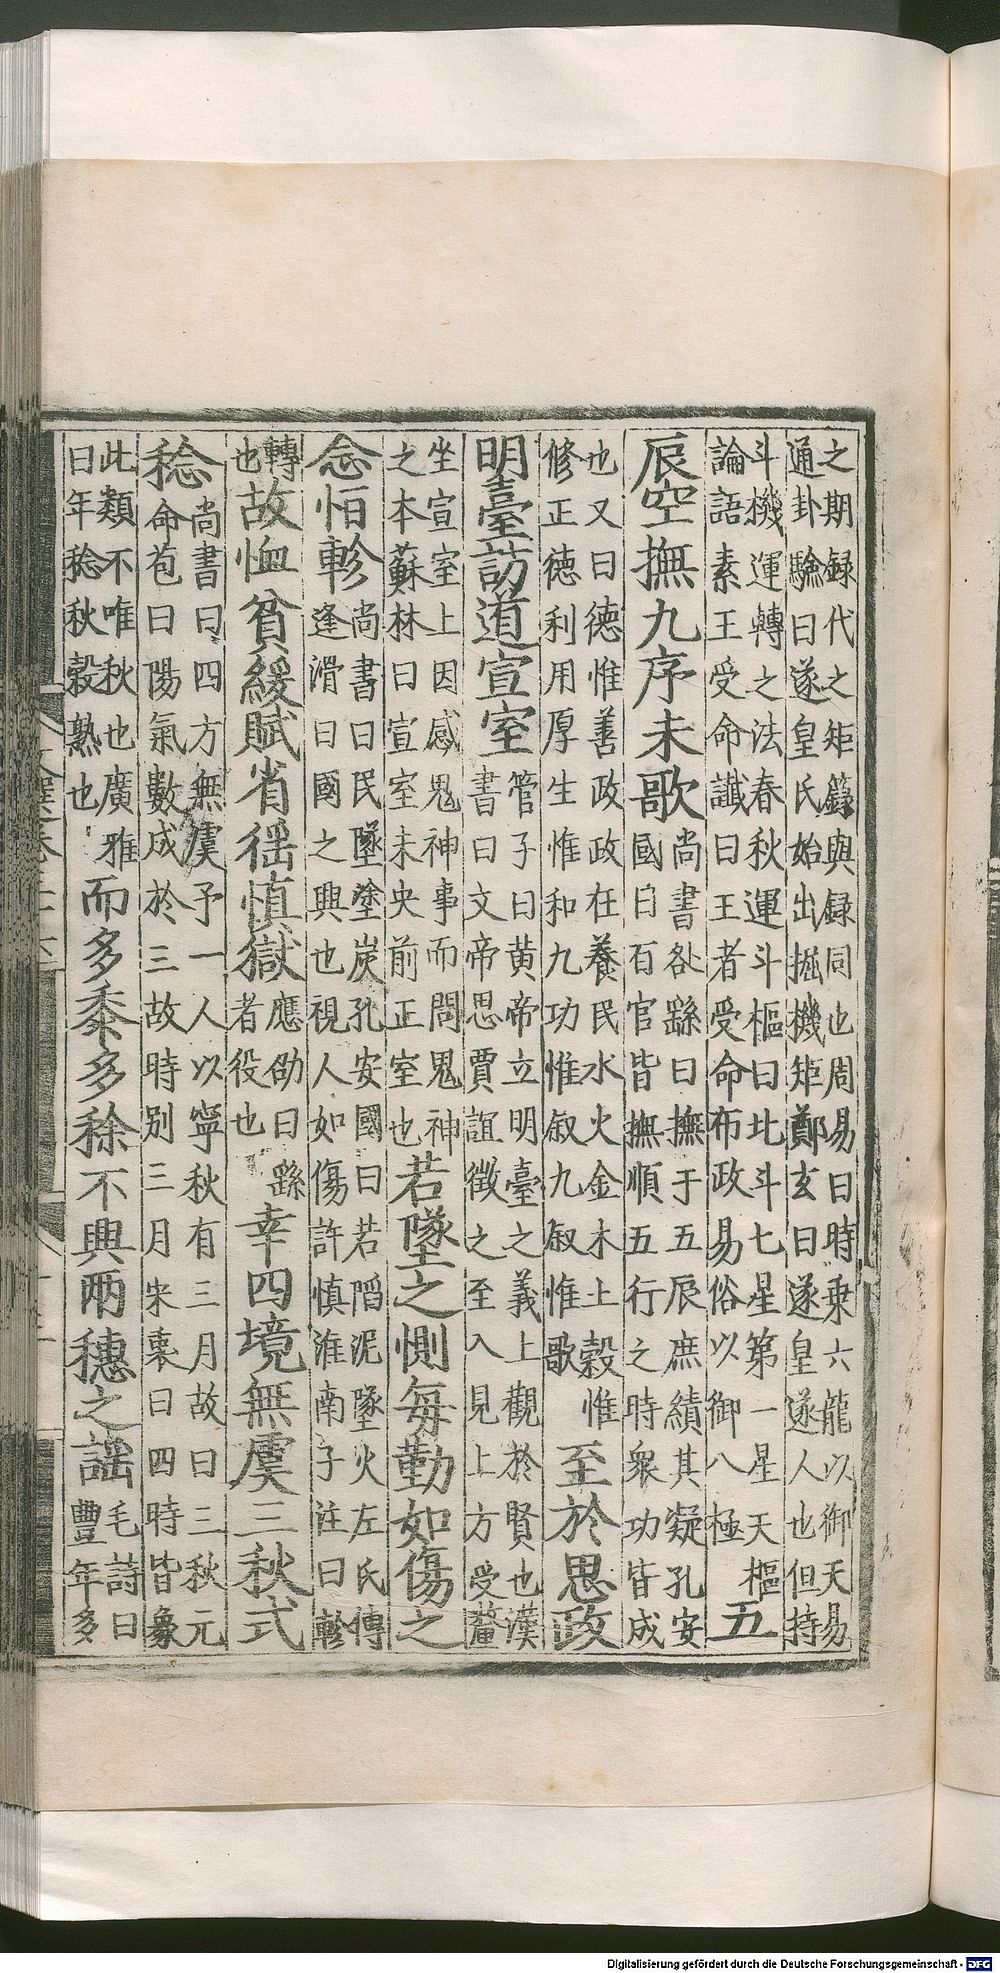 之期録代之矩籙與録同也周易曰時乗六龍以御天易
通卦驗曰遂皇氏始出握機矩鄭玄曰遂皇遂人也但持
斗機運轉之法春秋運斗樞曰北斗七星第一星天樞
論語素王受命讖曰王者受命布政易俗以御八極
五
辰空撫九序未歌
尚書咎繇曰撫于五辰庶績其凝孔安
國曰百官皆撫順五行之時衆功皆成
也又曰德惟善政政在養民水火金木土穀惟
修正德利用厚生惟和九功惟叙九叙惟歌
至於思政
明臺訪道宣室
管子曰黄帝立明臺之義上觀於賢也漢
書曰文帝思賈誼徴之至入見上方受釐
坐宣室上因感鬼神事而問鬼神
之本蘇林曰宣室未央前正室也
若墜之惻毎勤如傷之
念恒軫
尚書曰民墜塗炭孔安國曰若陷泥墜火左氏傳
逢滑曰國之興也視人如傷許慎淮南子注曰軫
轉
也
故恤貧緩賦省徭慎獄
應劭曰繇
者役也
幸四境無虞三秋式
稔
尚書曰四方無虞予一人以寧秋有三月故曰三秋元
命苞曰陽氣數成於三故時别三月宋衷曰四時皆象
此類不唯秋也廣雅
曰年稔秋穀熟也
而多黍多稌不興兩穗之謡
毛詩曰
豐年多
Digitalisierung gefördert durch die Deutsche Forschungsgemeinschaft - DFG